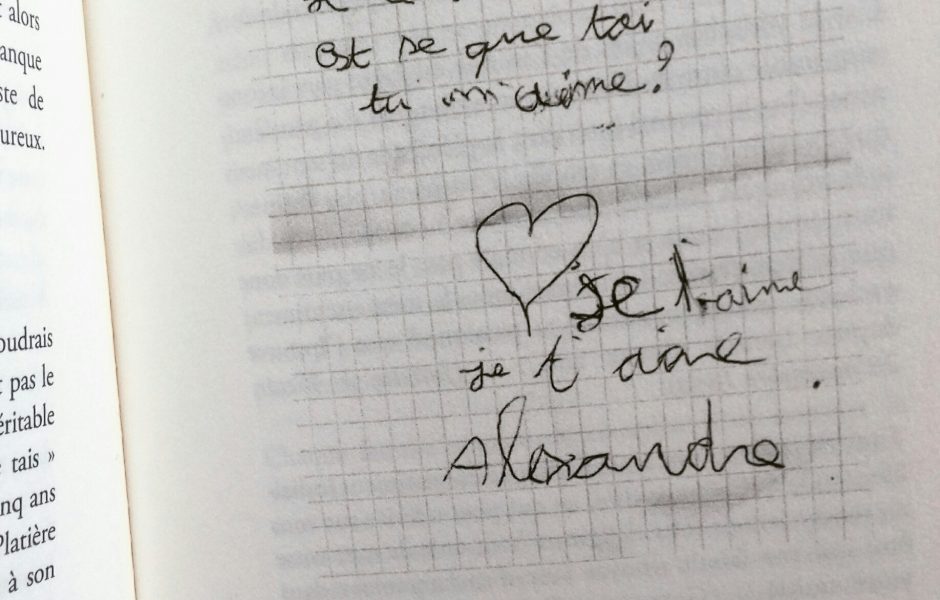 alors
anque
ste de
ureux.
oudrais
t pas le
éritable
tais »
nq ans
Platière
à son
est se que toi
tu m'aime?
Je t'aime
je t'aime
Alexandre